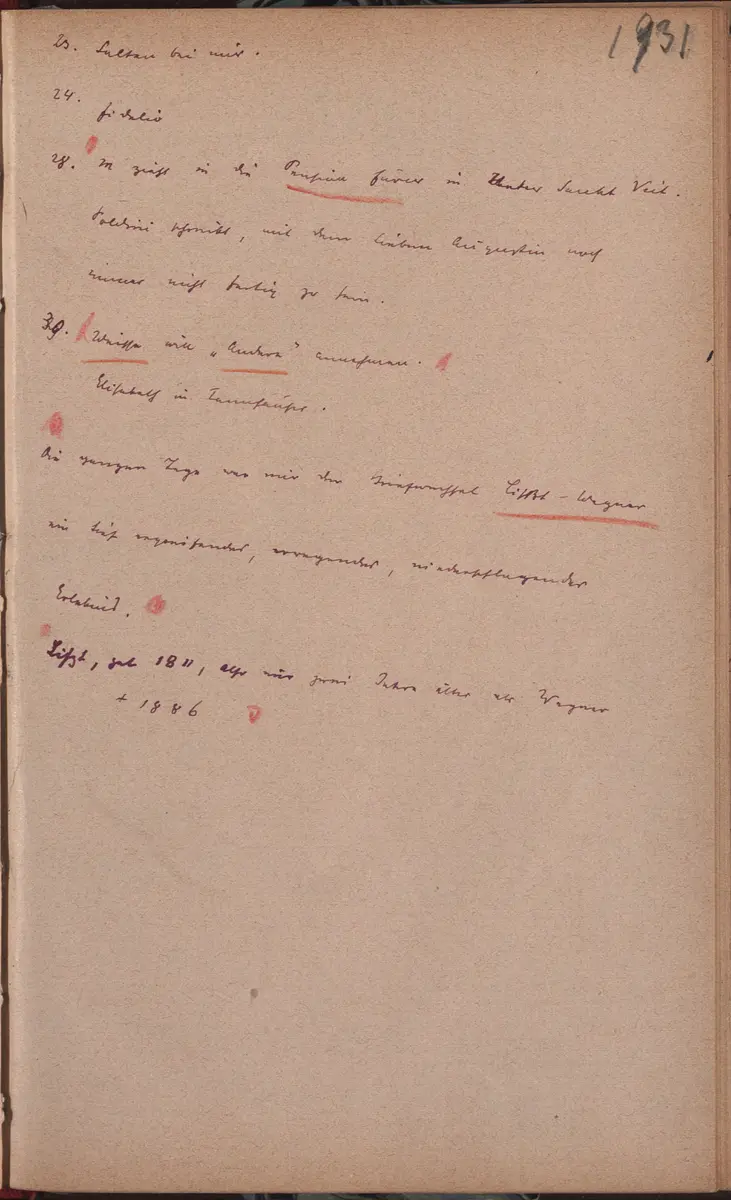 1931
23. Salten bei mir.
24. Fidelio
28. M zieht in die Pension Fürer in Unter Sankt Veit.
Poldini schreibt, mit dem lieben Augustin noch
immer nicht fertig zu sein.
30. will „Andere" annehmen.
Elisabeth in Tannhäuser.
Die ganzen Tage war mir der Briefwechsel Lißzt - Wagner
ein tief ergreifendes, erregendes, niederschlagendes
Erlebnis.
Lißzt, geb 1811, also nur zwei Jahre älter als Wagner
+ 1886